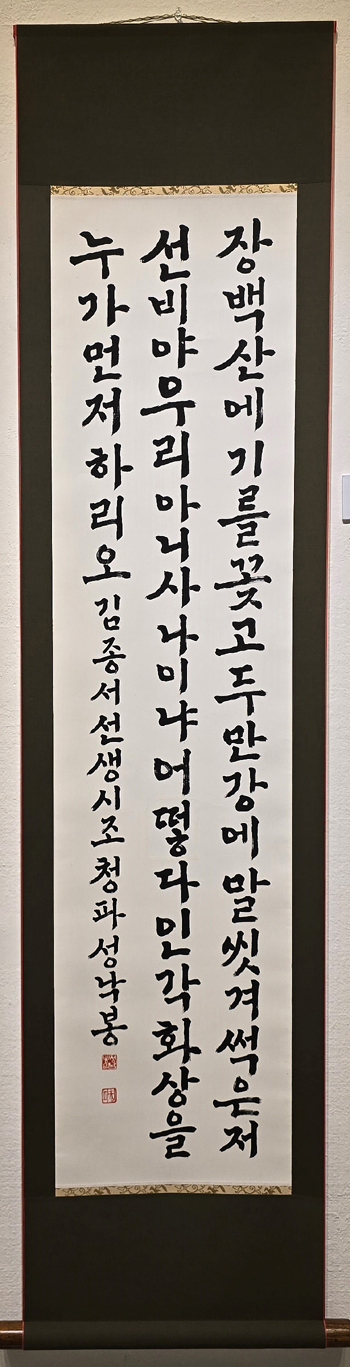 장백산에기를꽂고두만강에말씻겨썩은저
선비야우리아니사나이냐어떻다인각화상을
누가먼저하리오김종서선생시조청파성낙봉